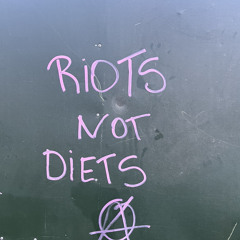 RIOTS
NOT
DIETS